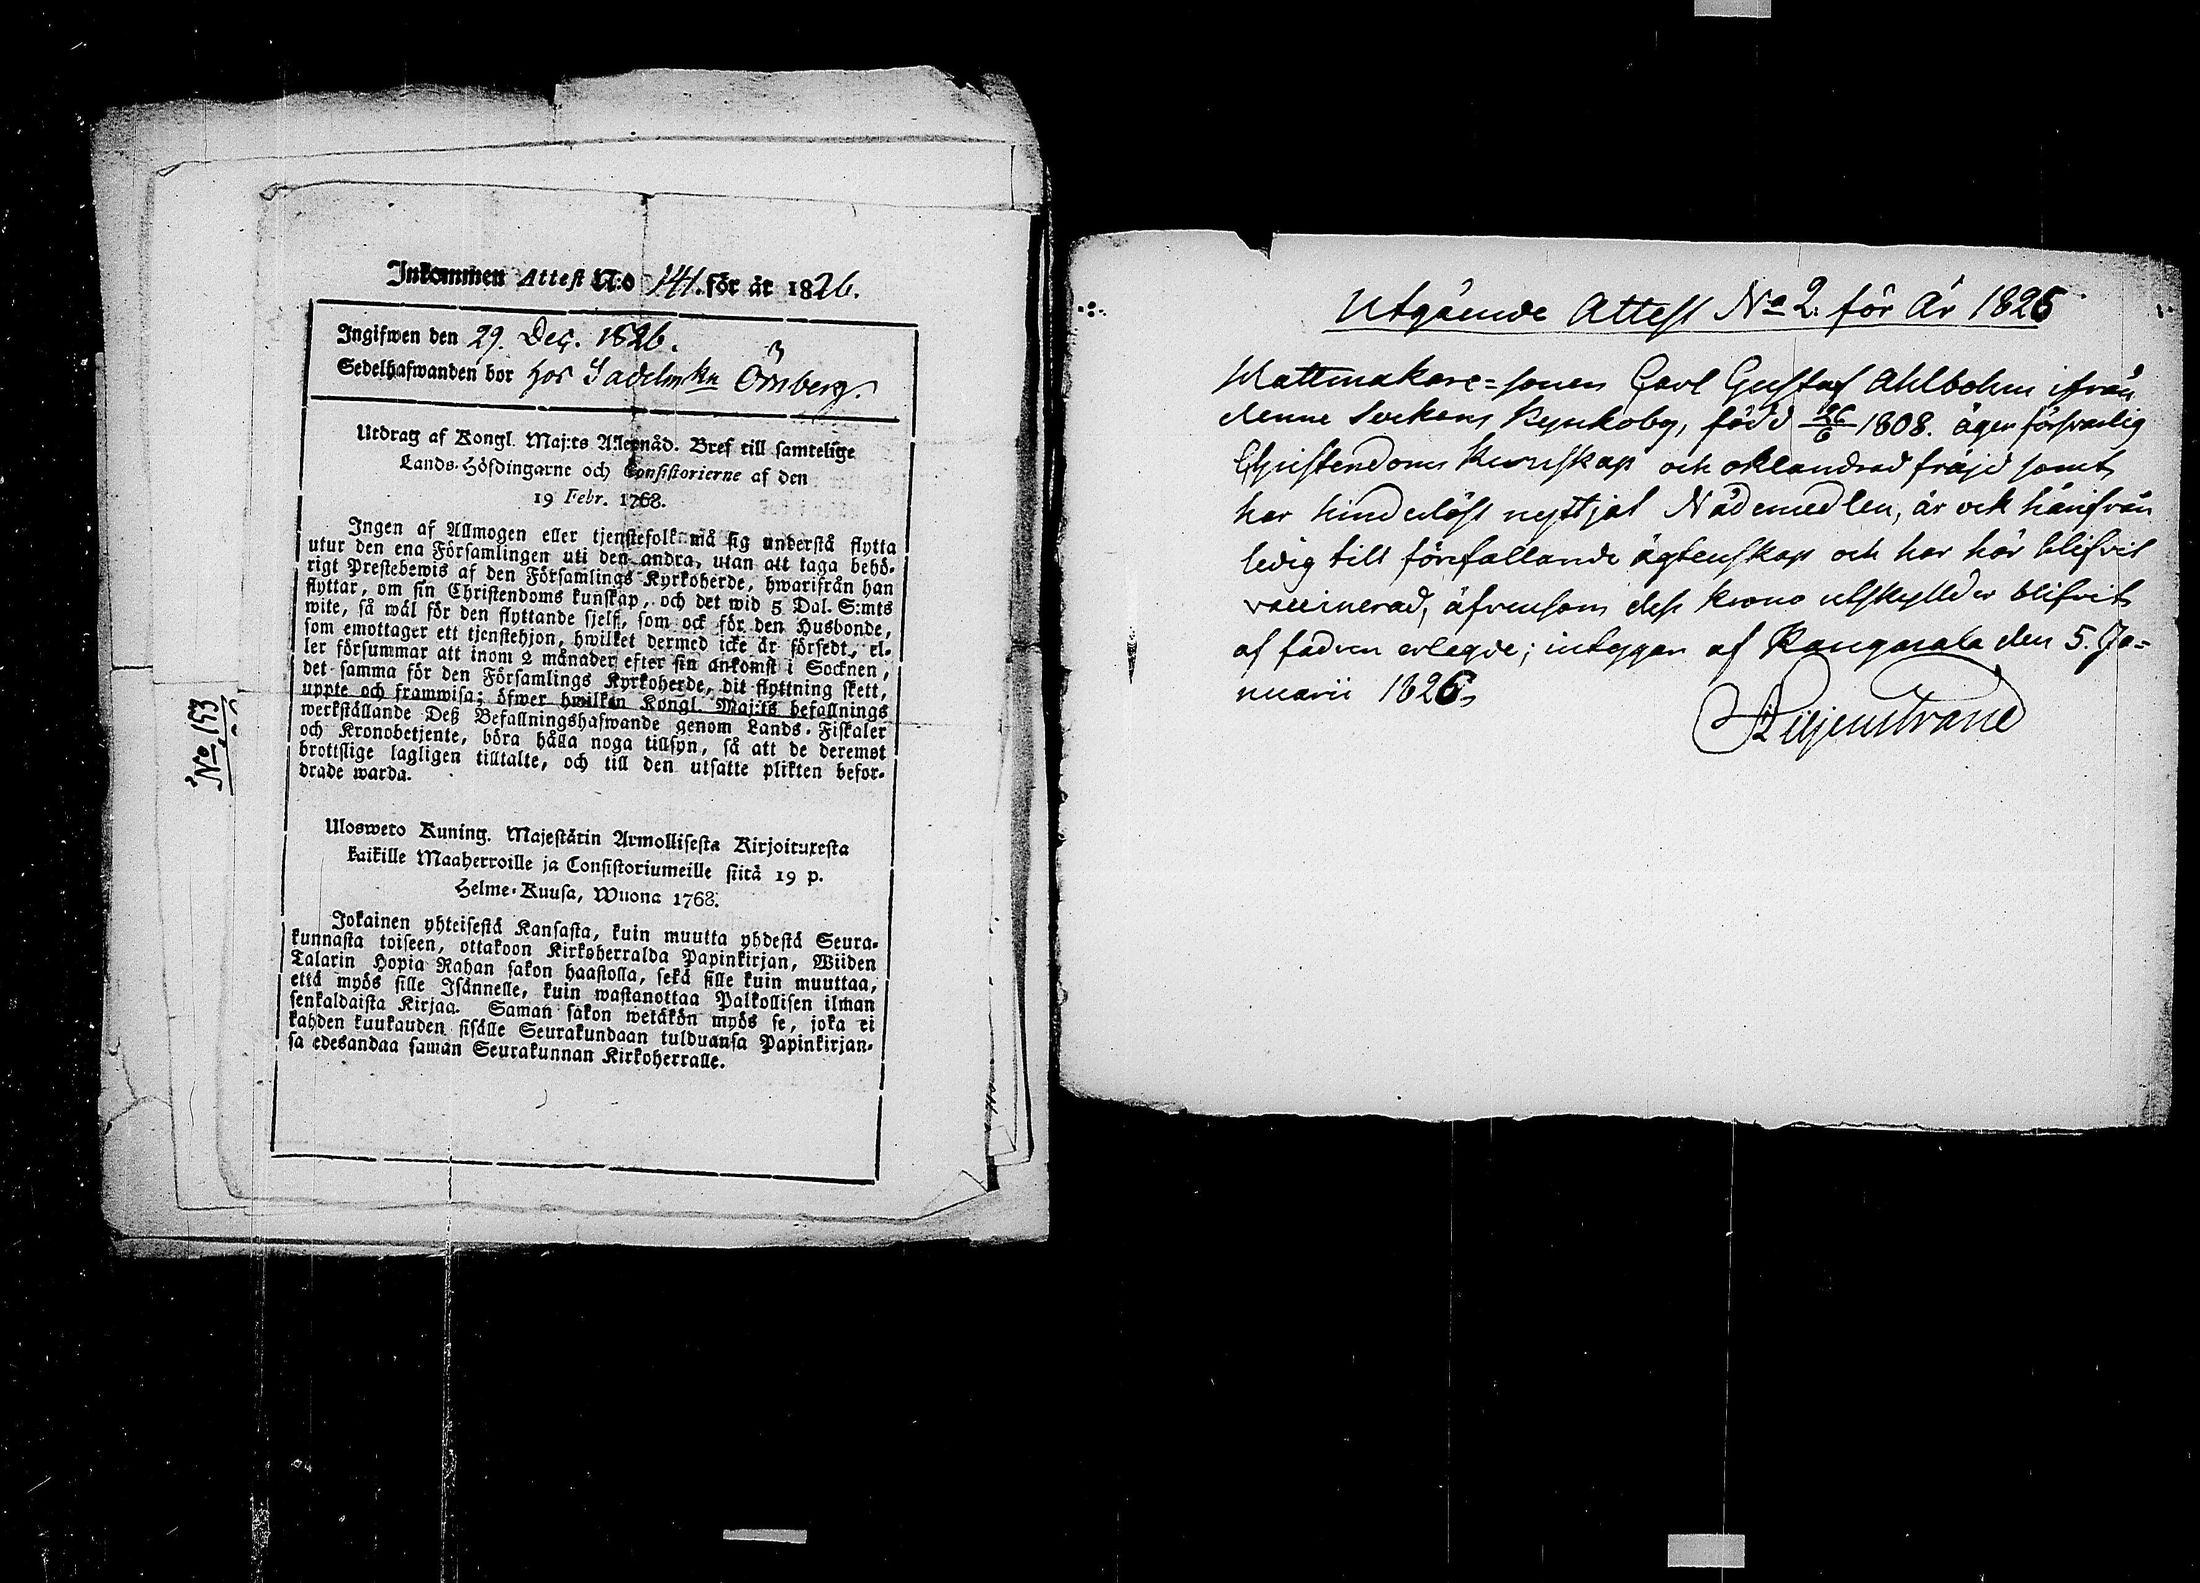 Inkommen Attest N:o 141. för år 1826.
Ingifwen den 29. Dec. 1826.
Sedelhafwanden bor hos Sadelmkn Örnberg.
Utdrag af Kongl. Maj:ts Allernåd. Bref till samtelige
Lands-Höfdingarne och Consistorierne af den
19 Febr. 1768.
Ingen af Allmogen eller tjenstefolk må sig understå flytta
utur den ena Församlingen uti den andra, utan att taga behö-
rigt Prestebewis af den Församlings Kyrkoherde, hwarifrån han
flyttar, om sin Christendoms kunskap, och det wid 5 Dal. S:mts
wite, så wäl för den flyttande sjelf, som ock för den Husbonde,
som emottager ett tjenstehjon, hwilket dermed icke är försedt, el-
ler försummar att inom 2 månader efter sin ankomst i Socknen,
det samma för den Församlings Kyrkoherde, dit flyttning skett,
uppte och framwisa; öfwer hwilken Kongl. Maj:ts befallnings
werkställande Deß Befallningshafwande genom Lands-Fiskaler
och Kronobetjente, böra hålla noga tillsyn, så att de deremot
brottslige lagligen tilltalte, och till den utsatte plikten befor-
drade warda.
Ulosweto Kuning. Majestätin Armollisesta Kirjoituxesta
kaikille Maaherroille ja Consistoriumeille siitä 19 p.
Helme-Kuusa, Wuona 1768.
Jokainen yhteisestä Kansasta, kuin muutta yhdestä Seura-
kunnasta toiseen, ottakoon Kirkoherralda Papinkirjan, Wiiden
Talarin Hopia Rahan sakon haastolla, sekä sille kuin muuttaa,
että myös sille Isännelle, kuin wastanottaa Palkollisen ilman
senkaldaista Kirjaa. Saman sakon wetäkön myös se, joka ei
kahden kuukauden sisälle Seurakundaan tulduansa Papinkirjan-
sa edesandaa saman Seurakunnan Kirkoherralle.
No 153
Utgående Attest No 2. för År 1826
Hattmakare=sonen Carl Gustaf Ahlbohm ifrån
denne Sockens Kyrkoby, född 26/6 1808. äger försvarlig
Christendoms Kunskap och oklandrad fräjd samt
har hinderlöst nyttjat Nådemedlen, är ock härifrån
ledig till förefallande ägtenskap och har här blifvit
vaccinerad, äfvensom dess krono utskylder blifvit
af fadren erlagde; intygar af Kangasala den 5. Ja-
nuarii 1826.